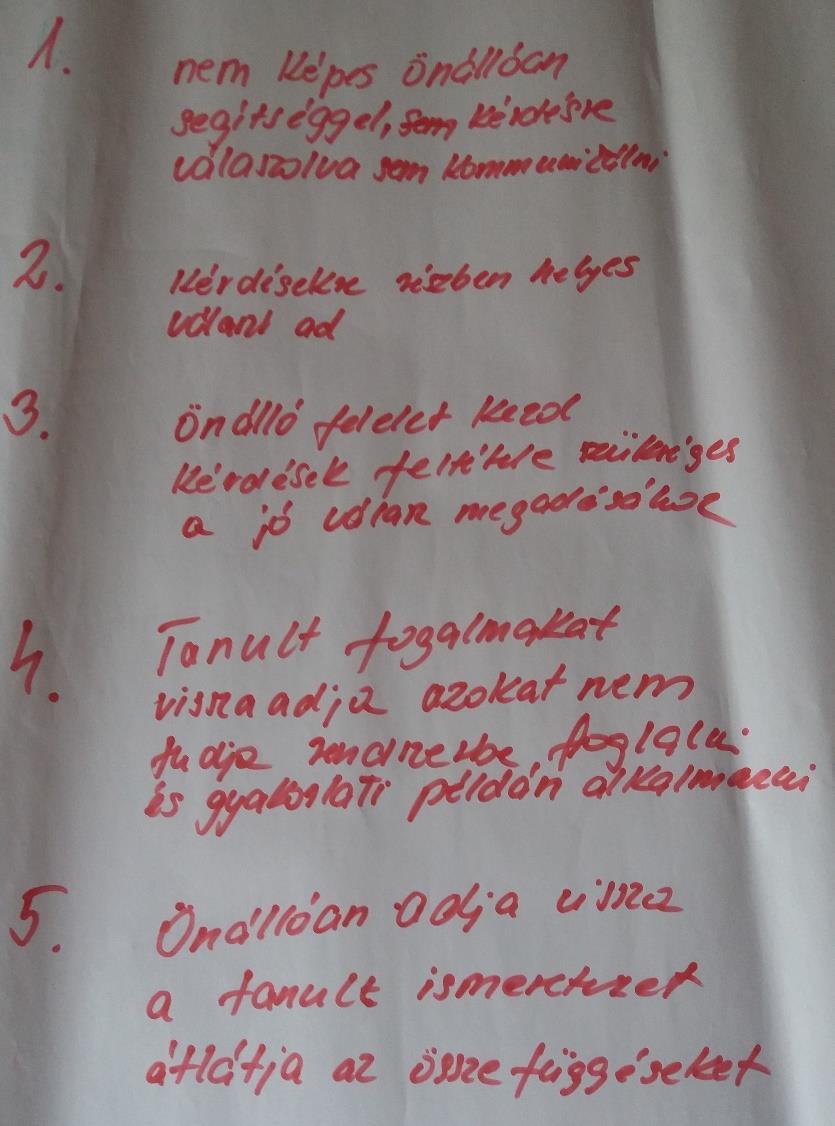 1.
nem képes önállóan
segítséggel, sem kérdésre
válaszolva sem kommunikálni
2.
Kérdésekre részben helyes
választ ad
3.
Önálló felelet kezd
kérdések feltétele szükséges
a jó válasz megadásához
4.
Tanult fogalmakat
visszaadja azokat nem
tudja rendszerbe foglalni
és gyakorlati példán alkalmazni
5.
Önállóan adja vissza
a tanult ismereteket
átlátja az összefüggéseket